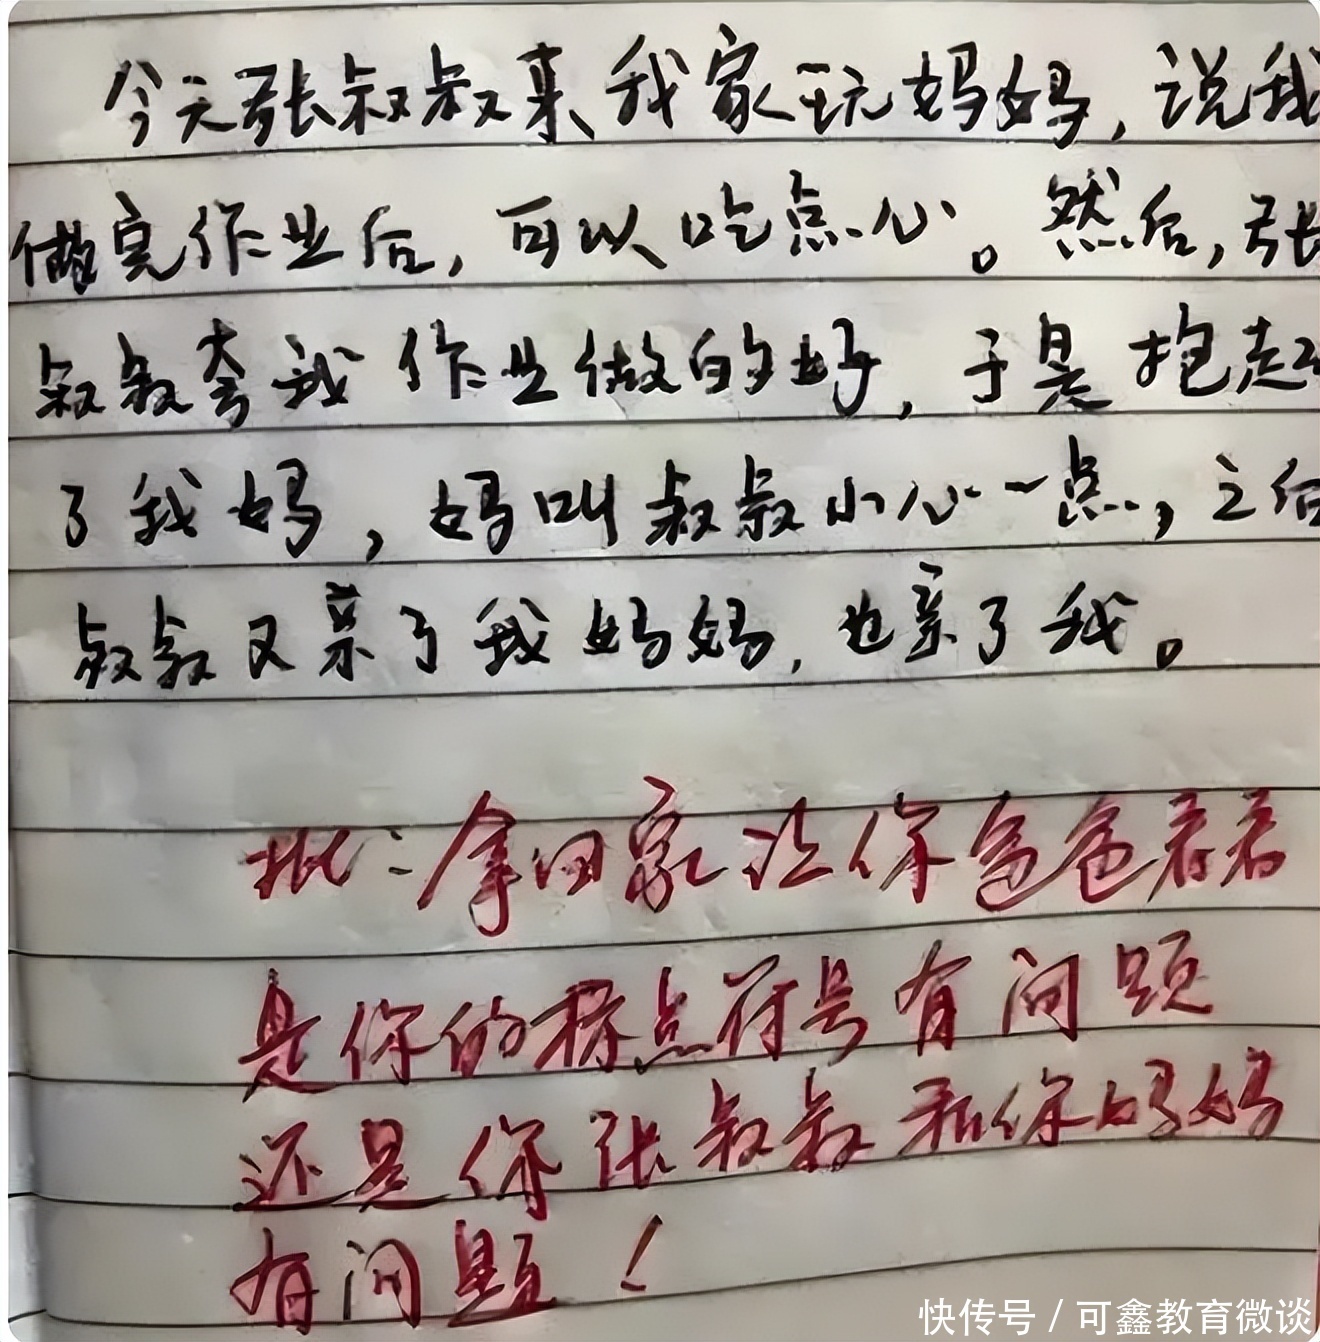 今天张叔叔来我家玩妈妈,说我
做完作业后,可以吃点心。然后,张
叔叔夸我作业做的好,于是抱起
了我妈,妈叫叔叔小心一点,之后
叔叔又亲了我妈妈,也亲了我。
批:拿回家让你爸爸看看
是你的标点符号有问题
还是你张叔叔和你妈妈
有问题!
快传号 / 可鑫教育微谈